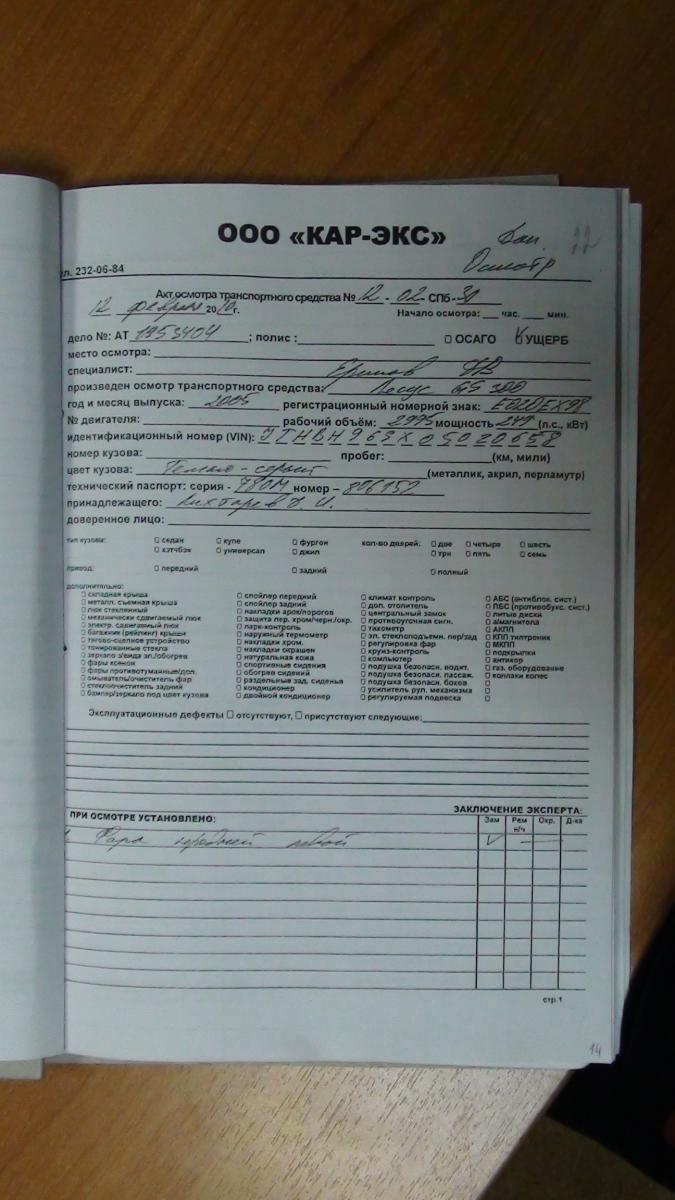 ООО «КАР-ЭКС»
Доп. 22
Осмотр
232-06-84
Акт осмотра транспортного средства № 12 - 02 - СПб - 30
12 февраля 2010 г. Начало осмотра: ___ час. ___ мин.
дело №: АТ 1953404 ; полис : ☐ ОСАГО ☑ УЩЕРБ
место осмотра:
специалист:
произведен осмотр транспортного средства: Лексус GS 300
год и месяц выпуска: 2005 регистрационный номерной знак: Е020ЕХ98
№ двигателя: рабочий объём: 2995 мощность 249 (л.с., кВт)
идентификационный номер (VIN): JTHBH96SX05020658
номер кузова: пробег: (км, мили)
цвет кузова: Темно-серый (металлик, акрил, перламутр)
технический паспорт: серия - 78ОМ номер – 806152
принадлежащего: Лихтарев Д. И.
доверенное лицо:
тип кузова: ☐ седан ☐ купе ☐ фургон кол-во дверей: ☐ две ☐ четыре ☐ шесть
☐ хэтчбэк ☐ универсал ☐ джип ☐ три ☐ пять ☐ семь
привод: ☐ передний ☐ задний ☐ полный
дополнительно:
☐ складная крыша ☐ спойлер передний ☐ климат контроль ☐ АБС (антиблок. сист.)
☐ металл. съемная крыша ☐ спойлер задний ☐ доп. отопитель ☐ ПБС (противобукс. сист.)
☐ люк стеклянный ☐ накладки арок/порогов ☐ центральный замок ☐ литые диски
☐ механически сдвигаемый люк ☐ защита пер. хром/черн./окр. ☐ противоугонная сигн. ☐ а/магнитола
☐ электр. сдвигаемый люк ☐ парк-контроль ☐ тахометр ☐ АКПП
☐ багажник (рейлинг) крыши ☐ наружный термометр ☐ эл. стеклоподъемн. пер/зад ☐ КПП типтроник
☐ тягово-сцепное устройство ☐ накладки хром. ☐ регулировка фар ☐ МКПП
☐ тонированные стекла ☐ накладки окрашен ☐ круиз-контроль ☐ подкрылки
☐ зеркало з/вида эл./обогрев ☐ натуральная кожа ☐ компьютер ☐ антикор
☐ фары ксенон ☐ спортивные сидения ☐ подушка безопасн. водит. ☐ газ. оборудование
☐ фары противотуманные/доп. ☐ обогрев сидений ☐ подушка безопасн. пассаж. ☐ колпаки колес
☐ омыватель/очиститель фар ☐ раздельные зад. сиденья ☐ подушка безопасн. боков ☐
☐ стеклоочиститель задний ☐ кондиционер ☐ усилитель рул. механизма ☐
☐ бампер/зеркало под цвет кузова ☐ двойной кондиционер ☐ регулируемая подвеска ☐
Эксплуатационные дефекты ☐ отсутствуют, ☐ присутствуют следующие:
ПРИ ОСМОТРЕ УСТАНОВЛЕНО: ЗАКЛЮЧЕНИЕ ЭКСПЕРТА:
Зам Рем н/ч Окр. Д-ка
1. Фара передней левой V —
стр.1
14